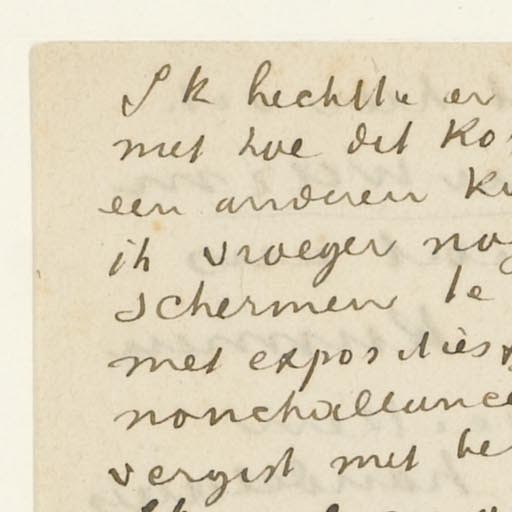 Ik hechtte er
met hoe dit ko
een anderen k
ik vroeger no
schermen te
met exposities
nonchallance
vergist met he